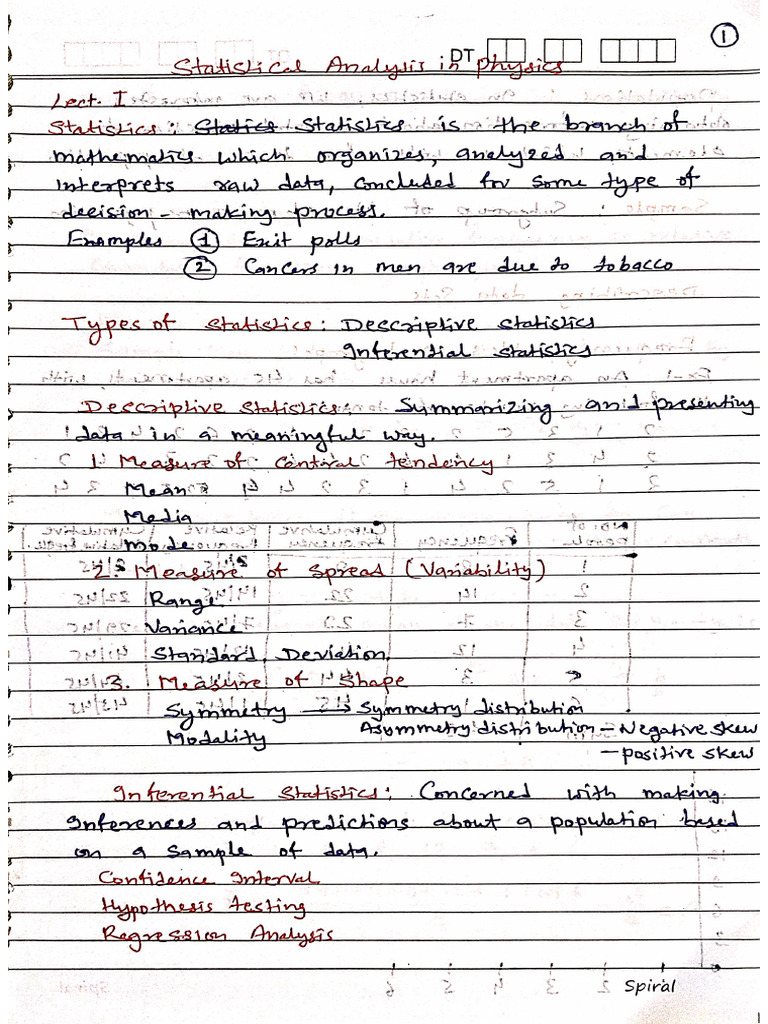 ①
DT
Statistical Analysis in Physics
Lect. I
Statistics: Statics Statistics is the branch of
mathematics which organizes, analyzed and
interprets raw data, concluded for some type of
decision - making process.
Examples ① Exit polls
② Cancers in men are due to tobacco
Types of Statistics: Descriptive statistics
Inferential statistics
Descriptive Statistics: Summarizing and presenting
data in a meaningful way.
1. Measure of central tendency
Mean
Media
mode
2. Measure of Spread (Variability)
Range
Variance
Standard Deviation
3. Measure of Shape
Symmetry → Symmetry distribution
Asymmetry distribution - Negative skew
Modality
- positive skew
Inferential Statistics: Concerned with making
inferences and predictions about a population based
on a sample of data.
Confidence Interval
Hypothesis testing
Regression Analysis
Spiral